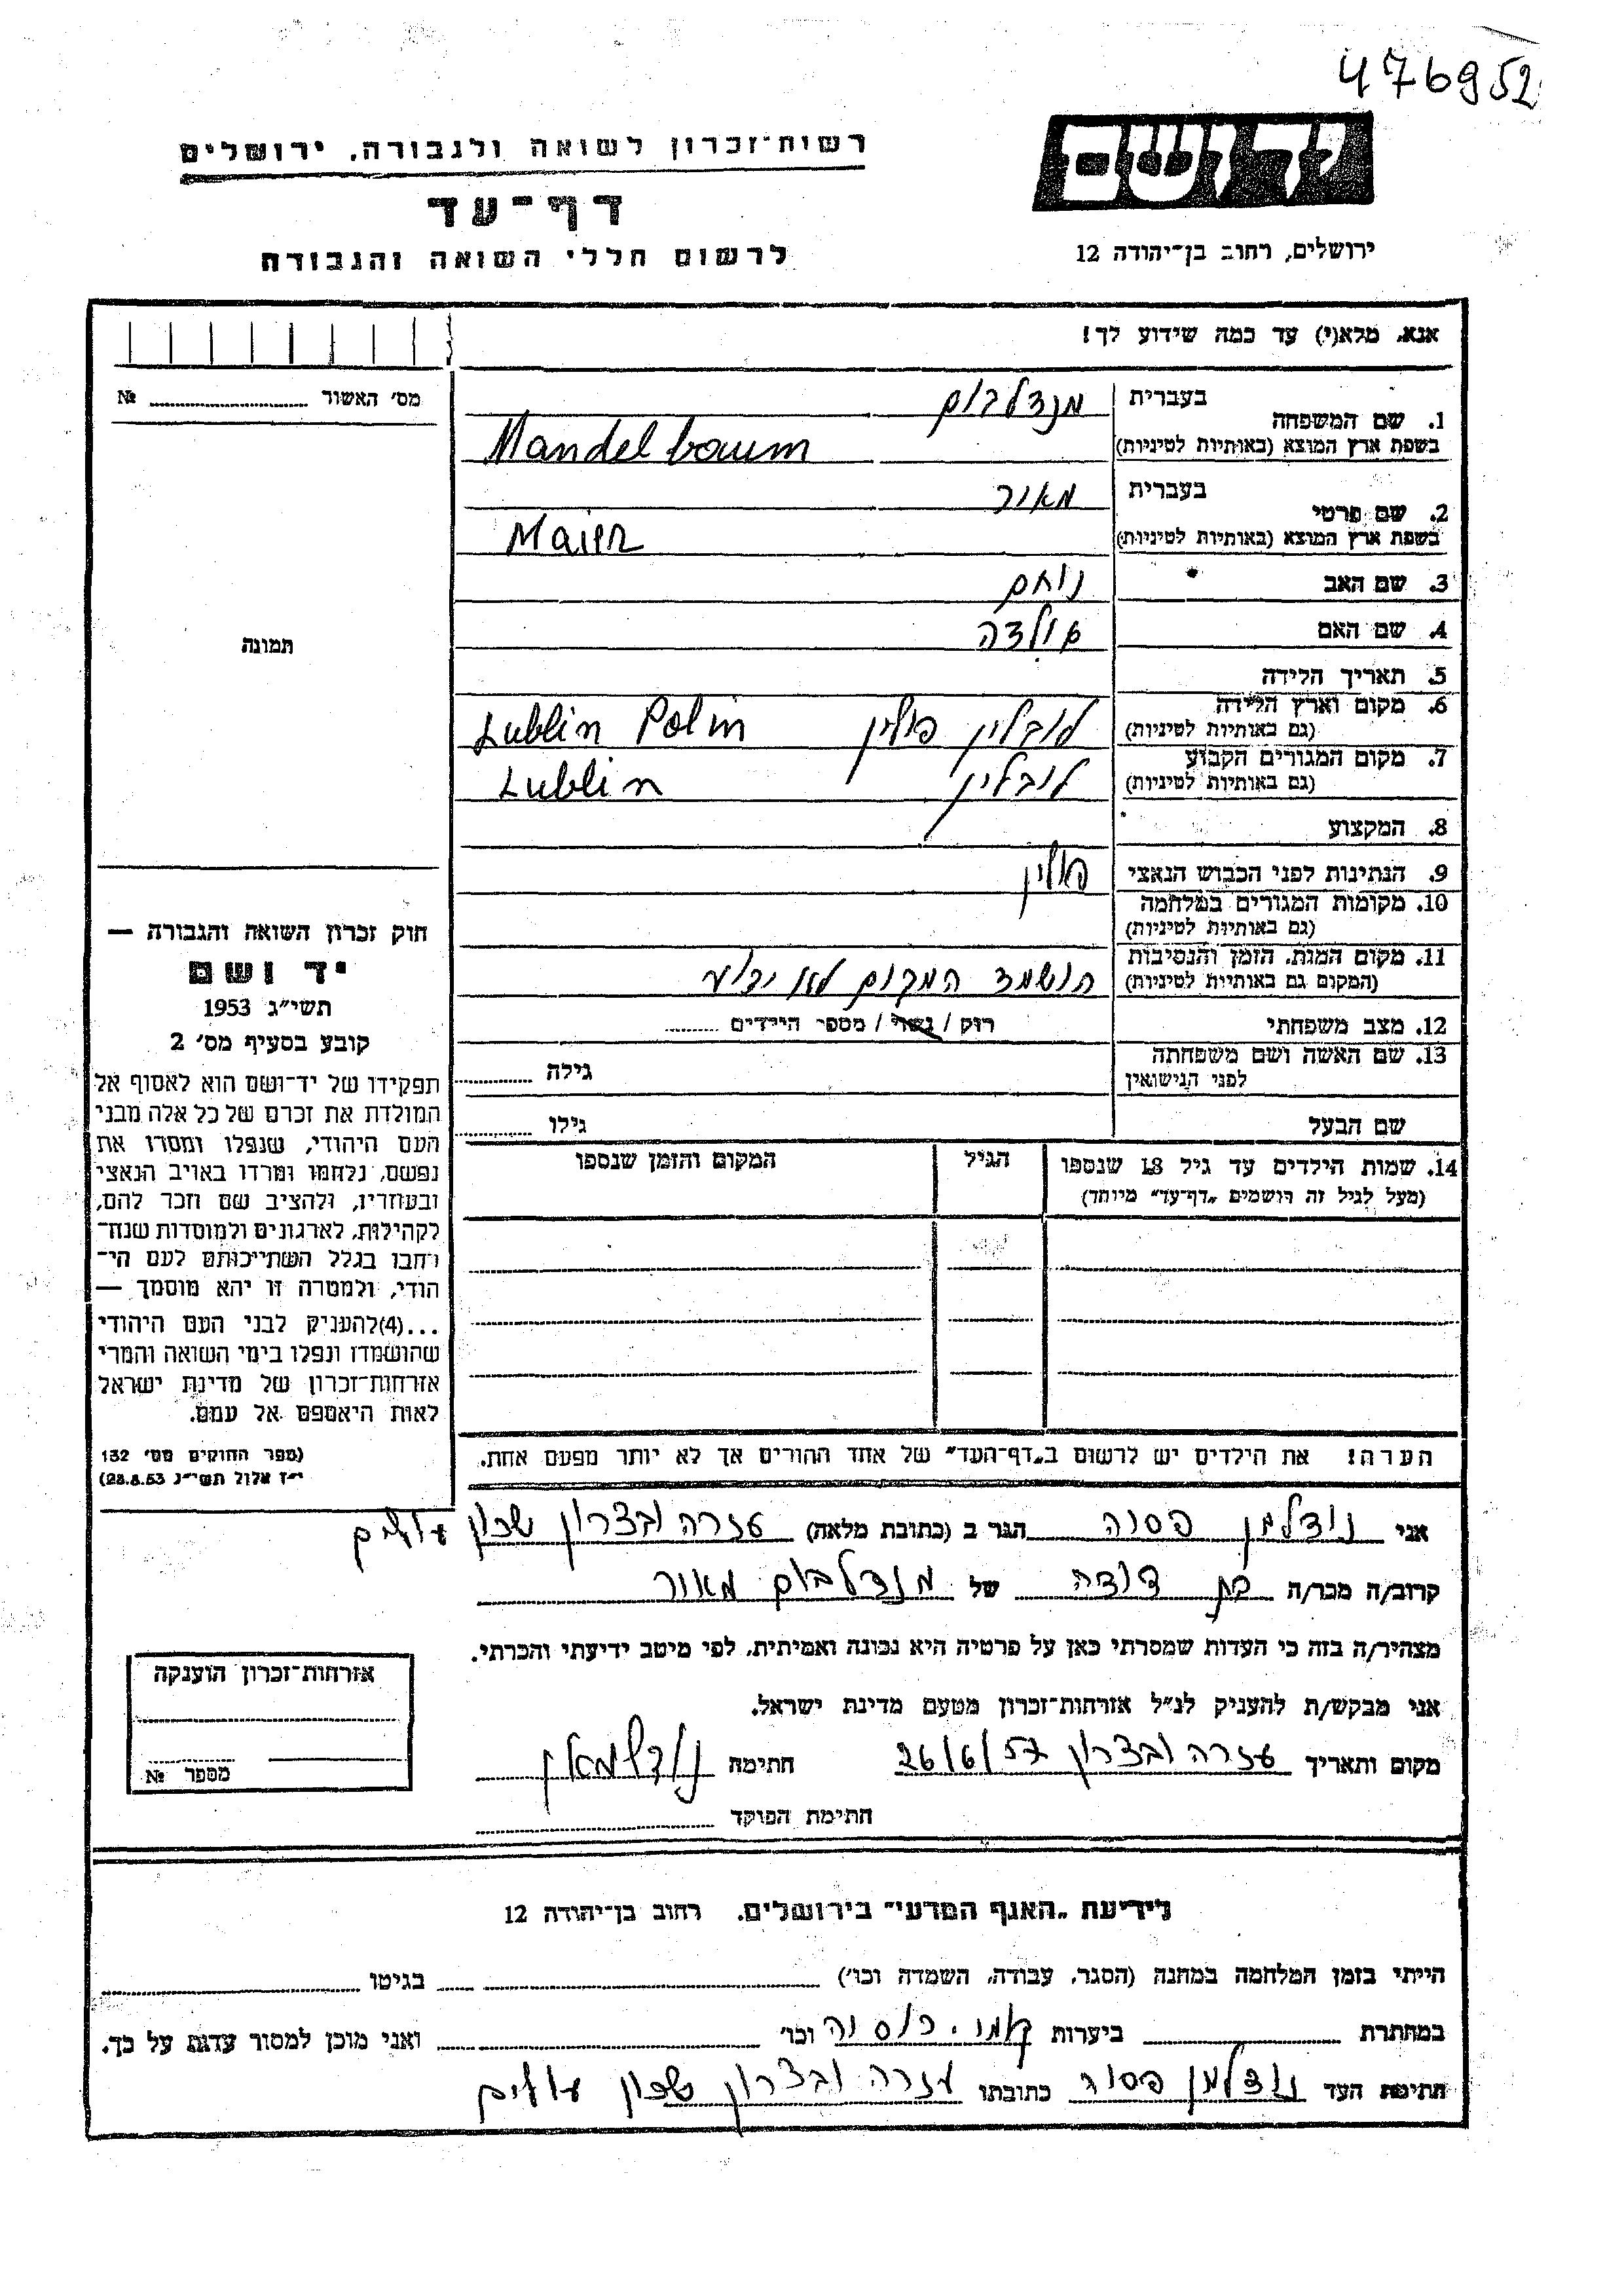 476952
יד ושם
רשות־זכרון לשואה ולגבורה, ירושלים
דף־עד
לרשום חללי השואה והגבורה
ירושלים, רחוב בן־יהודה 12
אנא, מלא(י) עד כמה שידוע לך!
מס' האשור № 
1. שם המשפחה
בעברית מנדלבוים
בשפת ארץ המוצא (באותיות לטיניות) Mandelbaum
2. שם פרטי
בעברית מאור
בשפת ארץ המוצא (באותיות לטיניות) Maier
3. שם האב נוחם
4. שם האם גולדה
5. תאריך הלידה
6. מקום וארץ הלידה
(גם באותיות לטיניות) לובלין פולין Lublin Polin
7. מקום המגורים הקבוע
(גם באותיות לטיניות) לובלין Lublin
8. המקצוע
9. הנתינות לפני הכבוש הנאצי פולין
10. מקומות המגורים במלחמה
(גם באותיות לטיניות)
11. מקום המות, הזמן והנסיבות
(המקום גם באותיות לטיניות) הושמד המקום לא ידוע
12. מצב משפחתי רוק / נשוי / מספר הילדים
13. שם האשה ושם משפחתה
לפני הנישואין גילה
שם הבעל גילו
14. שמות הילדים עד גיל 18 שנספו הגיל המקום והזמן שנספו
(מעל לגיל זה רושמים „דף־עד״ מיוחד)
הערה! את הילדים יש לרשום ב„דף־העד״ של אחד ההורים אך לא יותר מפעם אחת.
תמונה
חוק זכרון השואה והגבורה —
יד ושם
תשי״ג 1953
קובע בסעיף מס' 2
תפקידו של יד־ושם הוא לאסוף אל
המולדת את זכרם של כל אלה מבני
העם היהודי, שנפלו ומסרו את
נפשם, נלחמו ומרדו באויב הנאצי
ובעוזריו, ולהציב שם וזכר להם,
לקהילות, לארגונים ולמוסדות שנח־
רבו בגלל השתייכותם לעם הי־
הודי, ולמטרה זו יהא מוסמך —
...(4)להעניק לבני העם היהודי
שהושמדו ונפלו בימי השואה והמרי
אזרחות־זכרון של מדינת ישראל
לאות היאספם אל עמם.
(ספר החוקים מס' 132
י״ז אלול תשי״ג 28.8.53)
אני נודלמן פסוה הגר ב (כתובת מלאה) עזרה ובצרון שכון עולים
קרוב/ה מכר/ה בת דודה של מנדלבוים מאור
מצהיר/ה בזה כי העדות שמסרתי כאן על פרטיה היא נכונה ואמיתית, לפי מיטב ידיעתי והכרתי.
אני מבקש/ת להעניק לנ״ל אזרחות־זכרון מטעם מדינת ישראל.
מקום ותאריך עזרה ובצרון 26/6/57 חתימה נודלמאן
חתימת הפוקד
אזרחות־זכרון הוענקה
מספר №
לידיעת „האגף המדעי״ בירושלים, רחוב בן־יהודה 12
הייתי בזמן המלחמה במחנה (הסגר, עבודה, השמדה וכו') בגיטו
במחתרת ביערות וכו' ואני מוכן למסור עדות על כך.
חתימת העד נודלמן פסוה כתובתו עזרה ובצרון שכון עולים